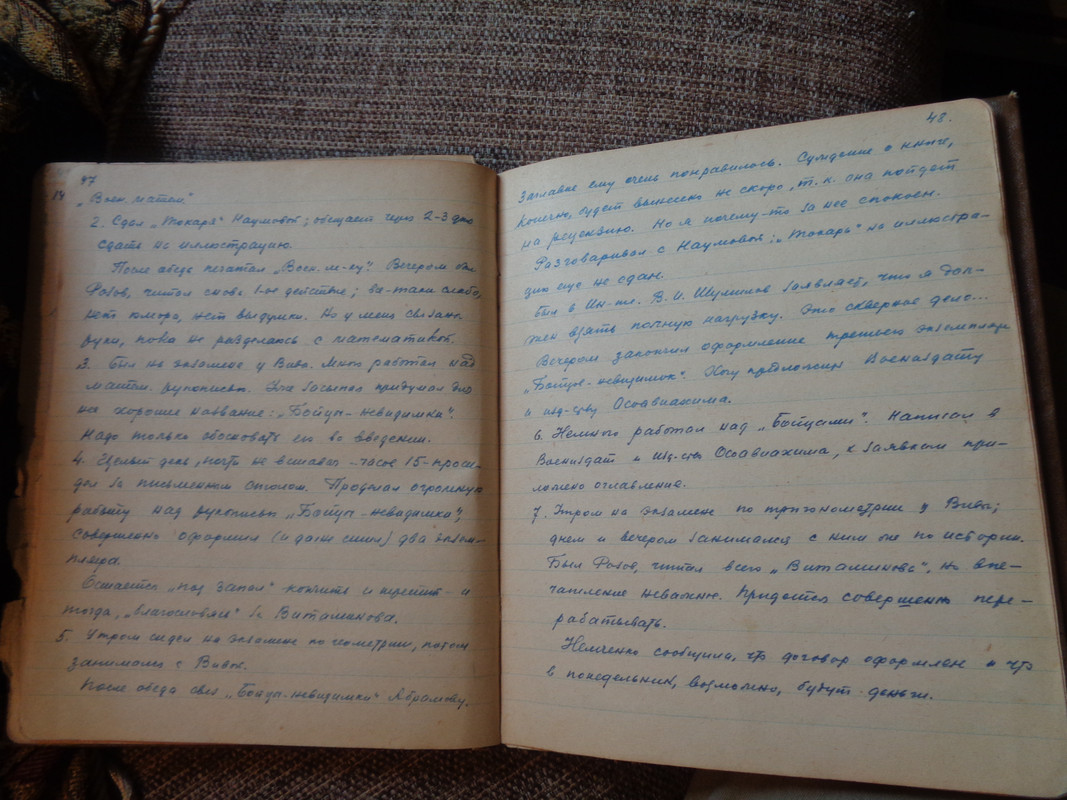 47
„Воен. матем."
2. Сдал „Токаря" Наумовой; обещает через 2-3 дня
сдать на иллюстрацию.
После обеда печатал „Воен. м-ку". Вечером был
Розов, читал снова 1-ое действие; все-таки слабо,
нет юмора, нет выдумки. Но у меня связаны
руки, пока не разделаюсь с математикой.
3. Был на экзамене у Вивы. Много работал над
матем. рукописью. Уже засыпая придумал для
на хорошее название: „Бойцы-невидимки".
Надо только обосновать его во введении.
4. Целый день, почти не вставая - часов 15 - проси-
дел за письменным столом. Проделал огромную
работу над рукописью „Бойцы-невидимки",
совершенно оформил (и даже сшил) два экзем-
пляра.
Остается „под запал" кончить и третий - и
тогда, „благословясь" за Витаминова.
5. Утром сидел на экзамене по геометрии, потом
занимался с Вивой.
После обеда свез „Бойцы-невидимки" Абрамову.
48.
Заглавие ему очень понравилось. Суждение о книге,
конечно, будет вынесено не скоро, т.к. она пойдет
на рецензию. Но я почему-то за нее спокоен.
Разговаривал с Наумовой: „Токарь" на иллюстра-
цию еще не сдан.
Был в Ин-те. В. И. Шумилов заявляет, что я дол-
жен взять полную нагрузку. Это скверное дело...
Вечером закончил оформление третьего экземпляра
„Бойцов-невидимок". Хочу предложить Воениздату
и изд-тву Осоавиахима.
6. Немного работал над „Бойцами". Написал в
Воениздат и изд-ство Осоавиахима, к заявкам при-
ложено оглавление.
7. Утром на экзамене по тригонометрии у Вивы;
днем и вечером занимался с ним же по истории.
Был Розов, читал всего „Витаминова", но впе-
чатление неважное. Придется совершенно пере-
рабатывать.
Немченко сообщила, что договор оформлен и что
в понедельник, возможно, будут деньги.